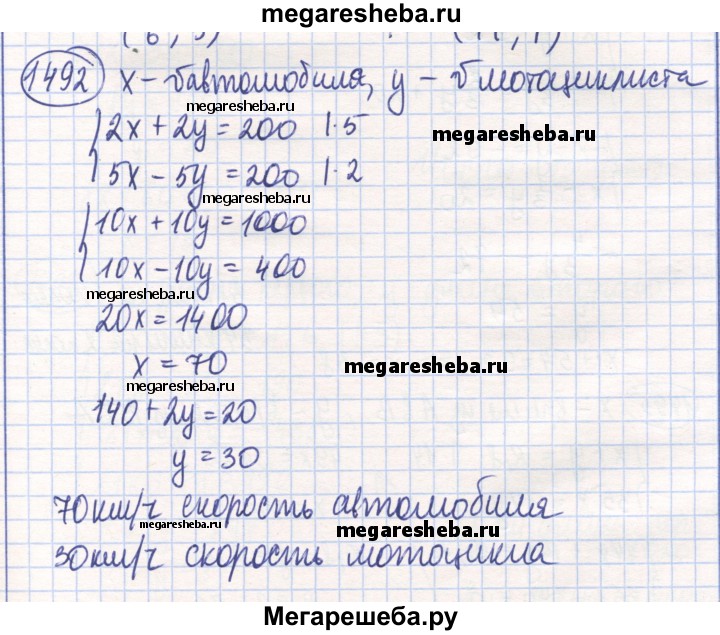 megaresheba.ru
1492 x – v автомобиля, y – v мотоциклиста
megaresheba.ru
2x + 2y = 200 | · 5
megaresheba.ru
5x – 5y = 200 | · 2
megaresheba.ru
10x + 10y = 1000
10x – 10y = 400
megaresheba.ru
20x = 1400
x = 70
megaresheba.ru
megaresheba.ru
140 + 2y = 20
y = 30
70 км/ч скорость автомобиля
megaresheba.ru
megaresheba.ru
30 км/ч скорость мотоцикла
Мегарешеба.ру